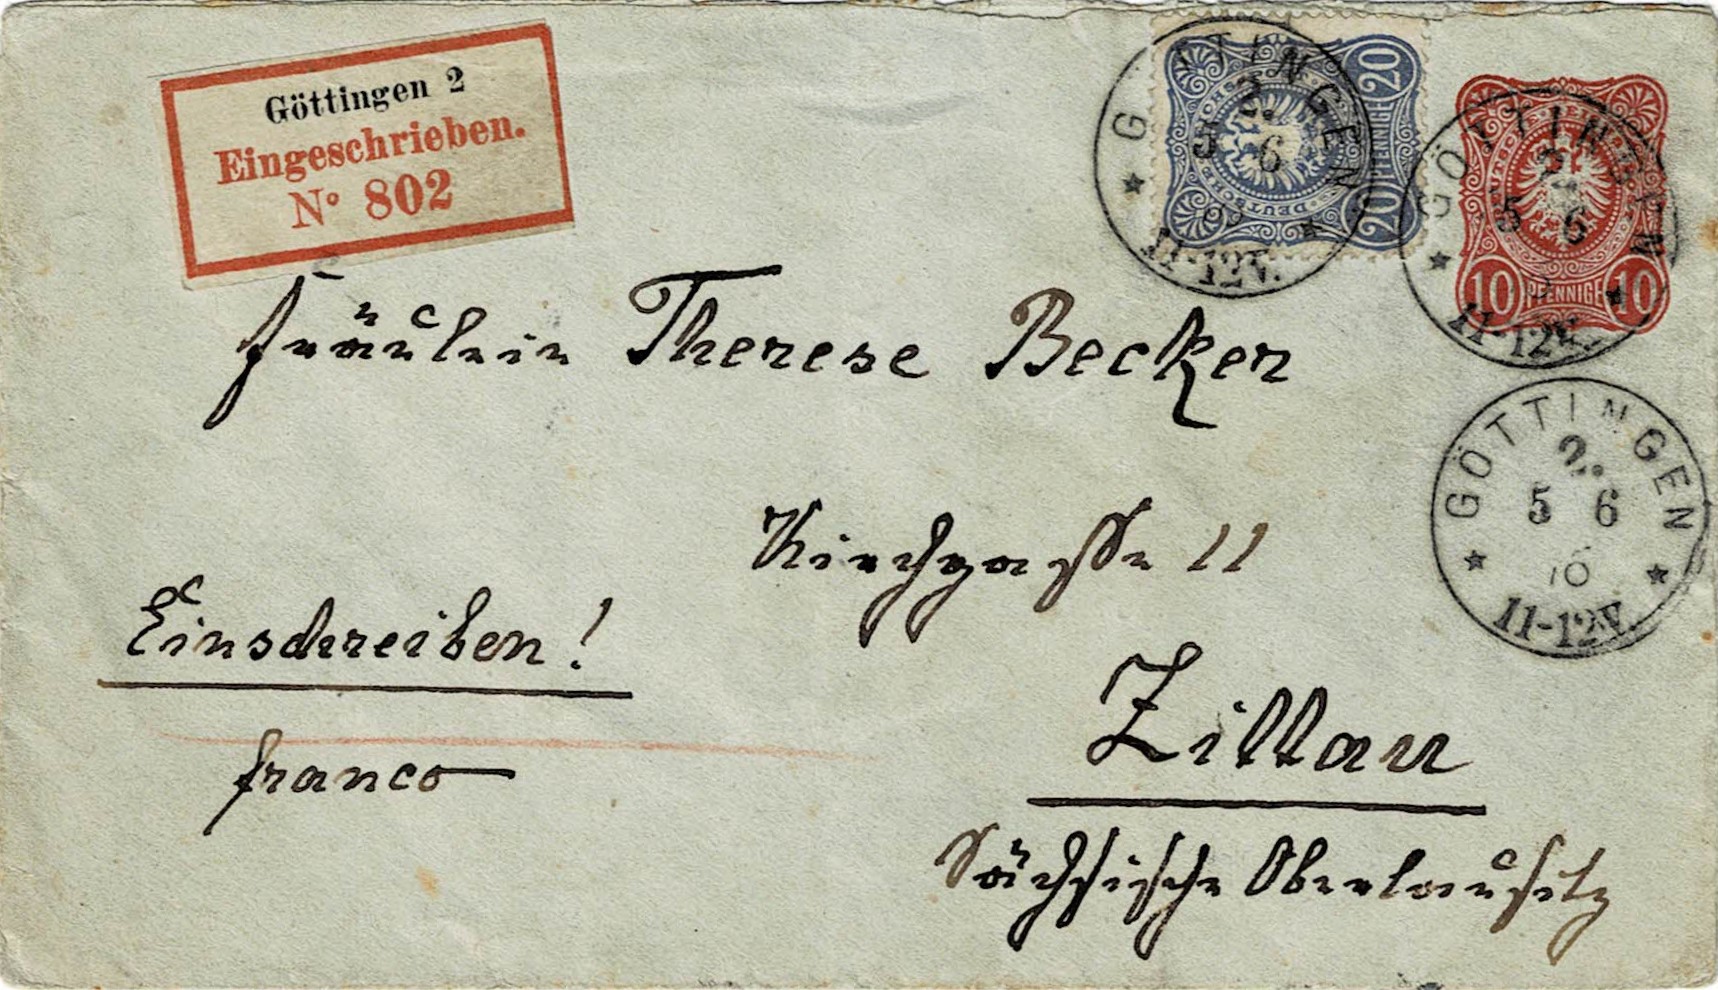 Göttingen 2
Eingeschrieben.
Nº 802
GÖTTINGEN
2.
5 6
11-12V.
20
PFENNIGE
20
DEUTSCHE
GÖTTINGEN
2.
5 6
11-12V.
10 PFENNIGE 10
GÖTTINGEN
2.
5 6
11-12V.
Fräulein Therese Becker
Kirchgasse 11
Einschreiben!
Zittau
franco
Sächsische Oberlausitz